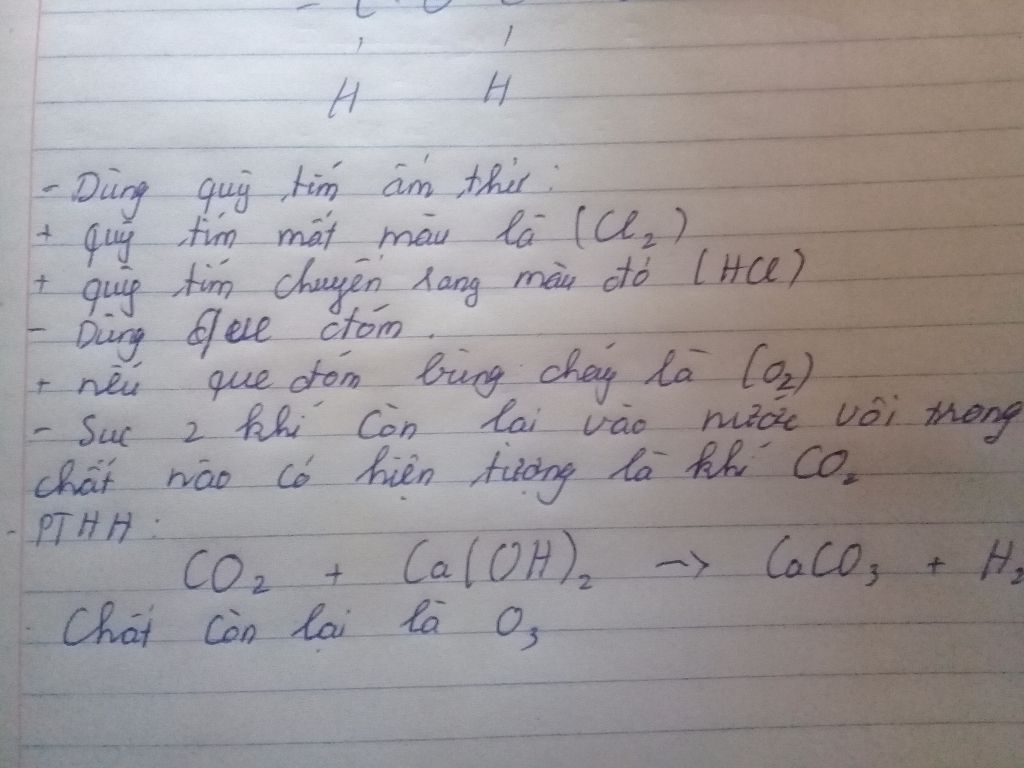 H H
- Dùng quỳ tím ẩm thử :
+ quỳ tím mất màu là (Cl₂)
+ quỳ tím chuyển sang màu đỏ (HCl)
- Dùng que đóm.
+ nếu que đóm bùng cháy là (O₂)
- Sục 2 khí còn lại vào nước vôi trong
chất nào có hiện tượng là khí CO₂
- PTHH :
CO₂ + Ca(OH)₂ -> CaCO₃ + H₂
Chất còn lại là O₃